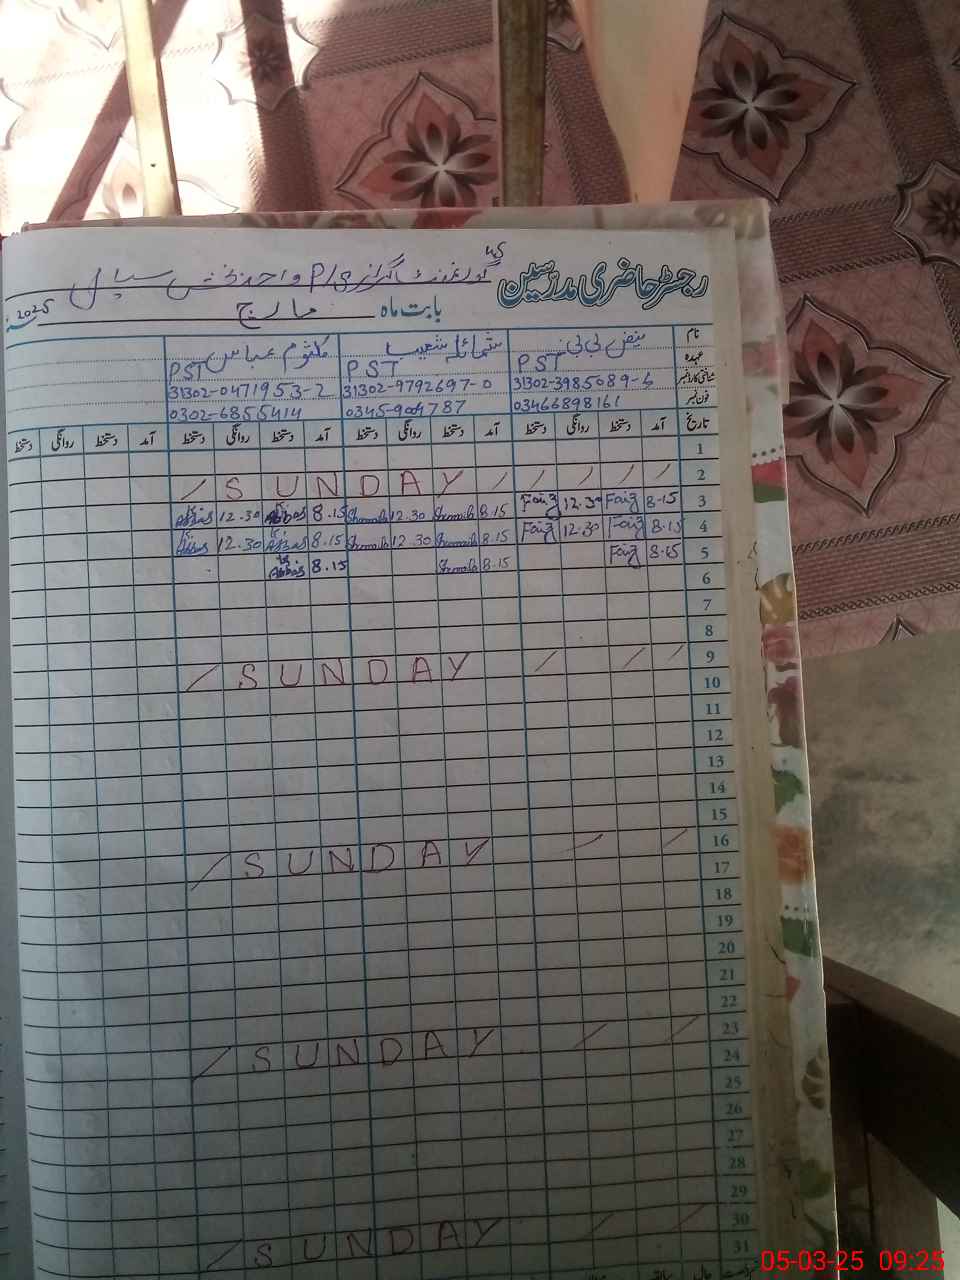 رجسٹر حاضری مدرسین
بابت ماہ مارچ 2025
نام فیض بی بی شمائلہ شعیب کلثوم عباس
عہدہ PST PST PST
شناختی کارڈ نمبر 31302-9792697-0 31302-0471953-2
فون نمبر 03466898161 0302-6855414
تاریخ آمد دستخط روانگی دستخط آمد دستخط روانگی دستخط آمد دستخط روانگی دستخط آمد دستخط روانگی دستخط
1
2 SUNDAY
3 8-15 Faiz 12.30 Faiz 8.15 12.30 8.15 Abbas 12.30 Abbas
4 8.15 Faiz 12.30 Faiz 8.15 12.30 8.15 Abbas 12.30 Abbas
5 8.15 Faiz 8.15 8.15 Abbas
6
7
8
9 SUNDAY
10
11
12
13
14
15
16 SUNDAY
17
18
19
20
21
22
23 SUNDAY
24
25
26
27
28
29
30 SUNDAY
31
05-03-25 09:25